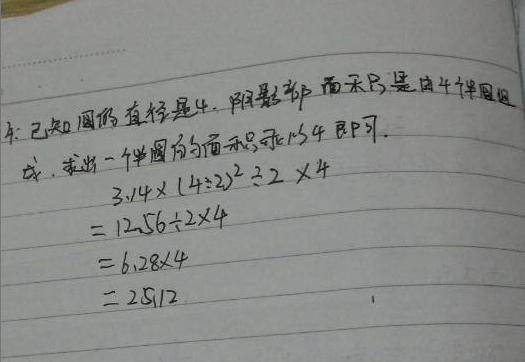 解:已知圆的直径是4.阴影部面积是由4个半圆组
成.求出一个半圆的面积乘以4即可.
3.14×(4÷2)²÷2×4
=12.56÷2×4
=6.28×4
=25.12